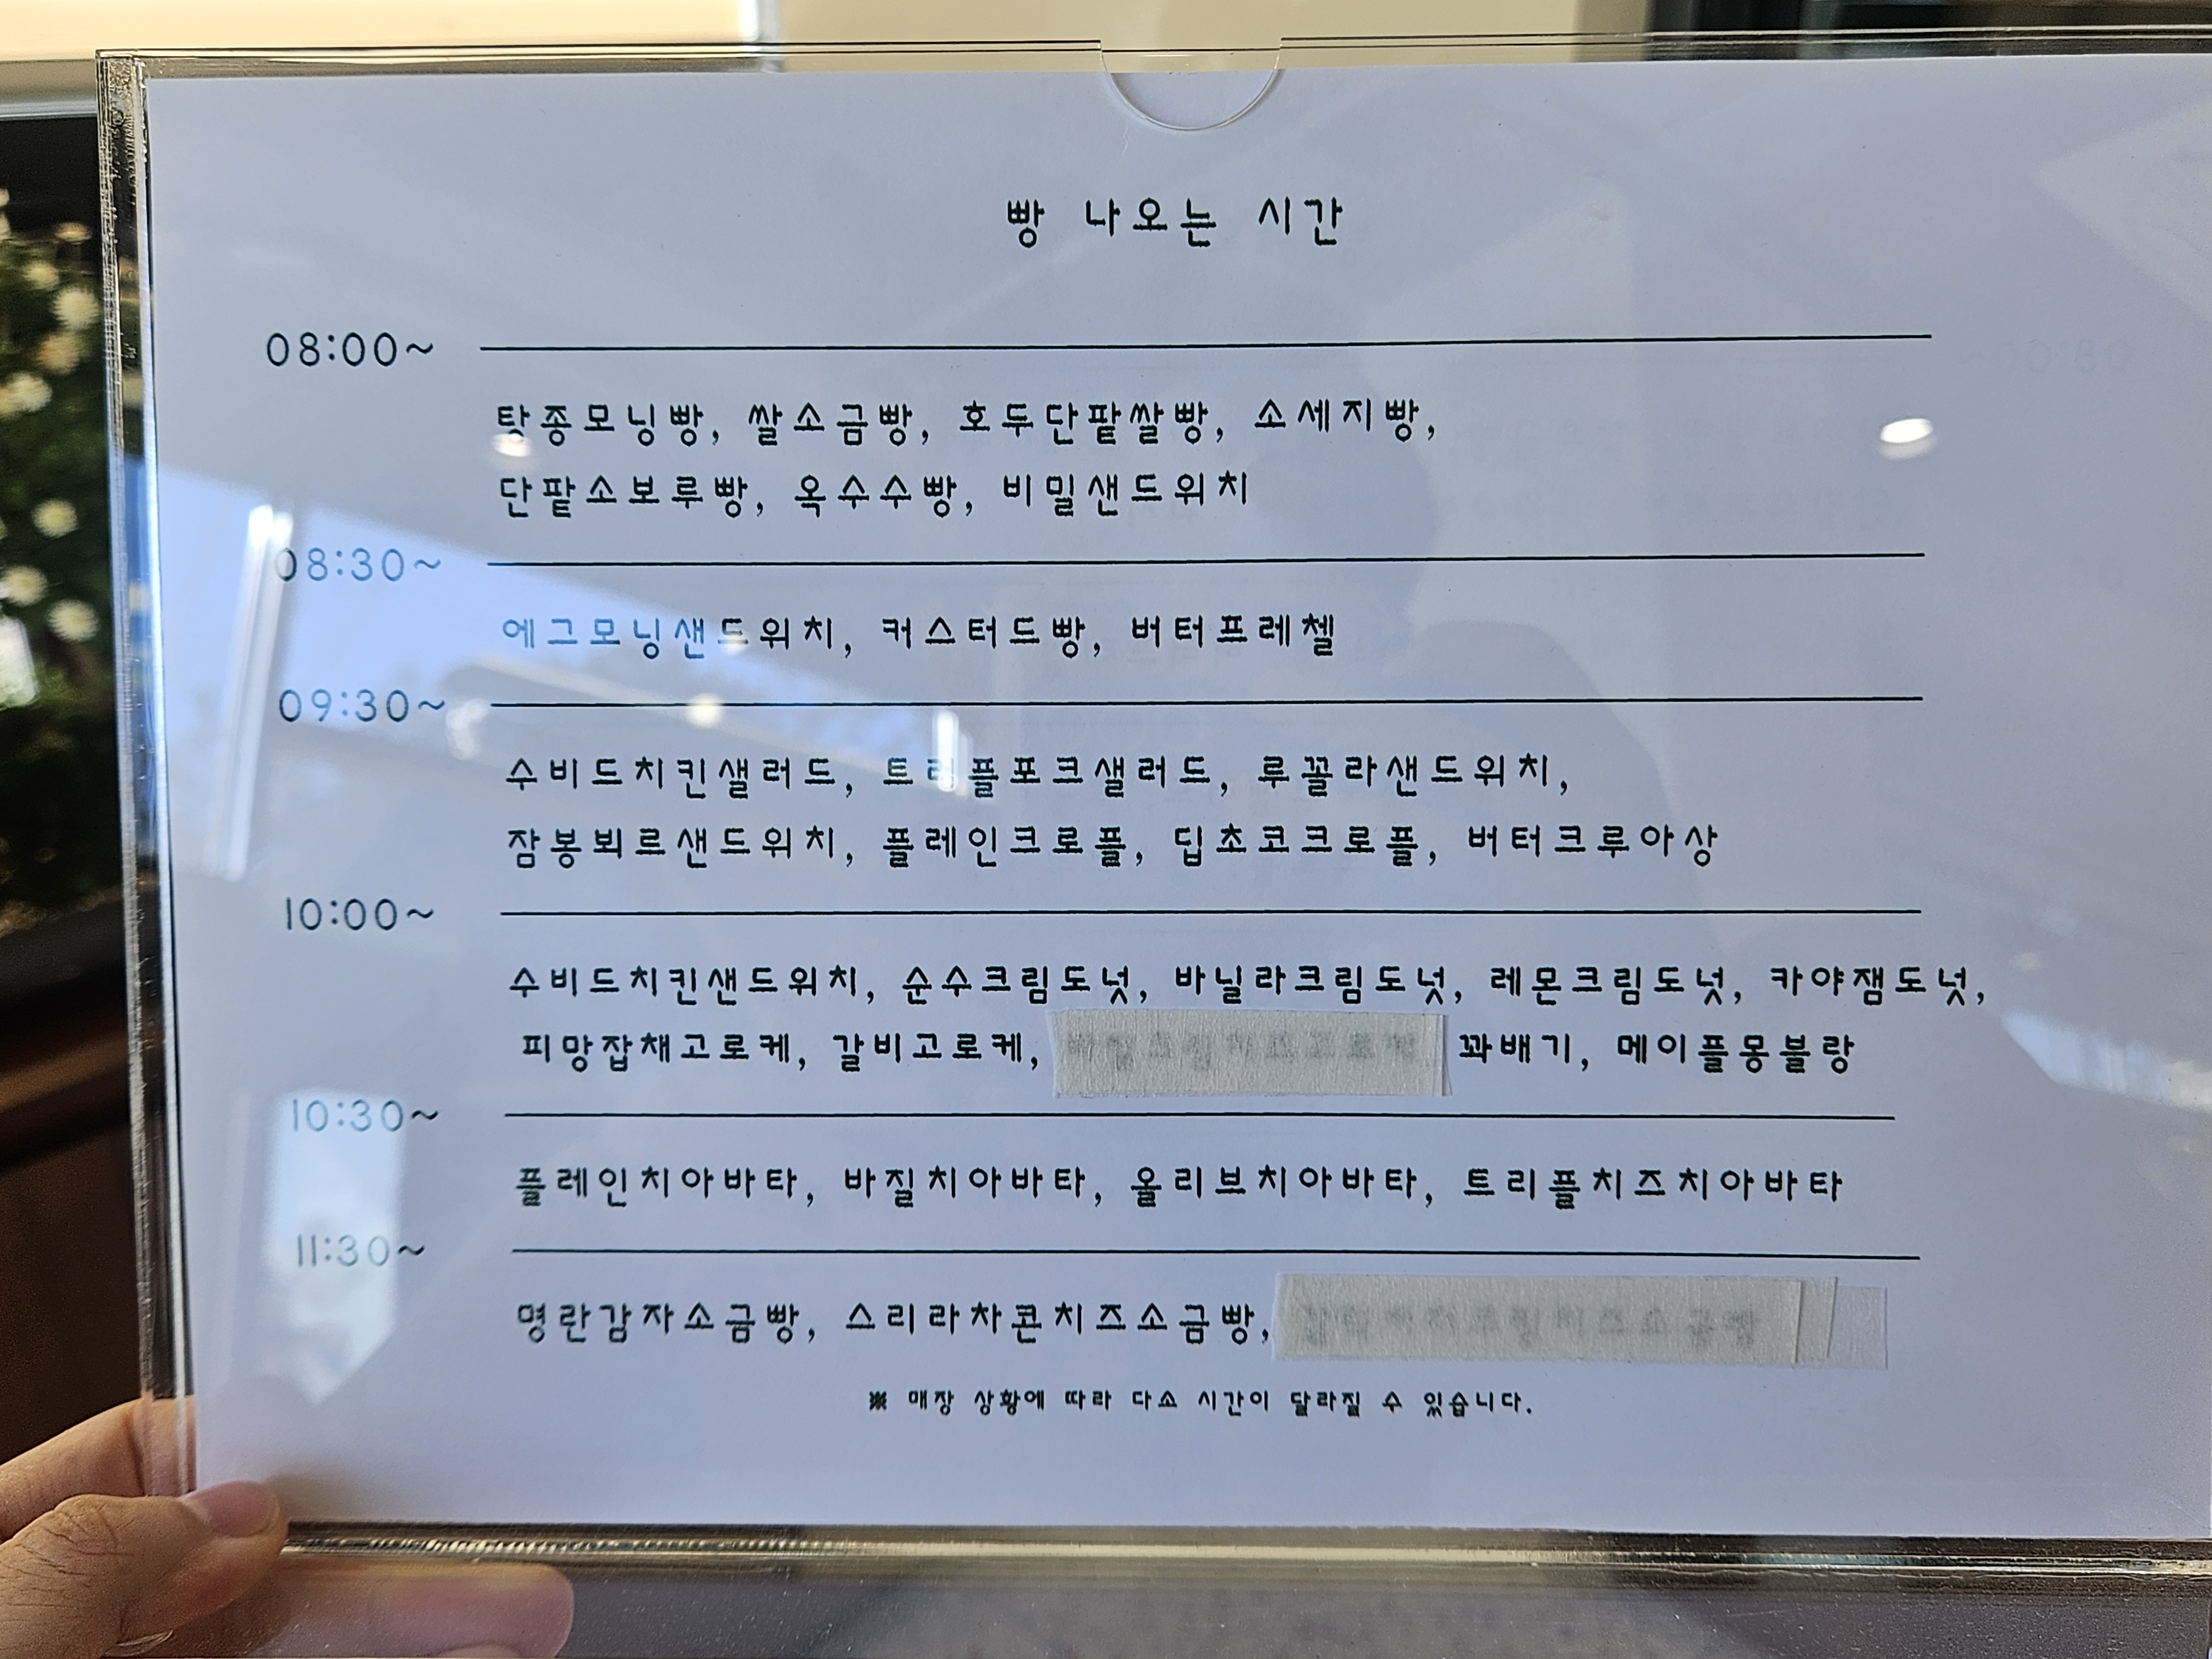 빵 나오는 시간
08:00~
탕종모닝빵, 쌀소금빵, 호두단팥쌀빵, 소세지빵,
단팥소보루빵, 옥수수빵, 비밀샌드위치
08:30~
에그모닝샌드위치, 커스터드빵, 버터프레첼
09:30~
수비드치킨샐러드, 트리플포크샐러드, 루꼴라샌드위치,
잠봉뵈르샌드위치, 플레인크로플, 딥초코크로플, 버터크루아상
10:00~
수비드치킨샌드위치, 순수크림도넛, 바닐라크림도넛, 레몬크림도넛, 카야잼도넛,
피망잡채고로케, 갈비고로케, 꽈배기, 메이플몽블랑
10:30~
플레인치아바타, 바질치아바타, 올리브치아바타, 트리플치즈치아바타
11:30~
명란감자소금빵, 스리라차콘치즈소금빵,
※ 매장 상황에 따라 다소 시간이 달라질 수 있습니다.